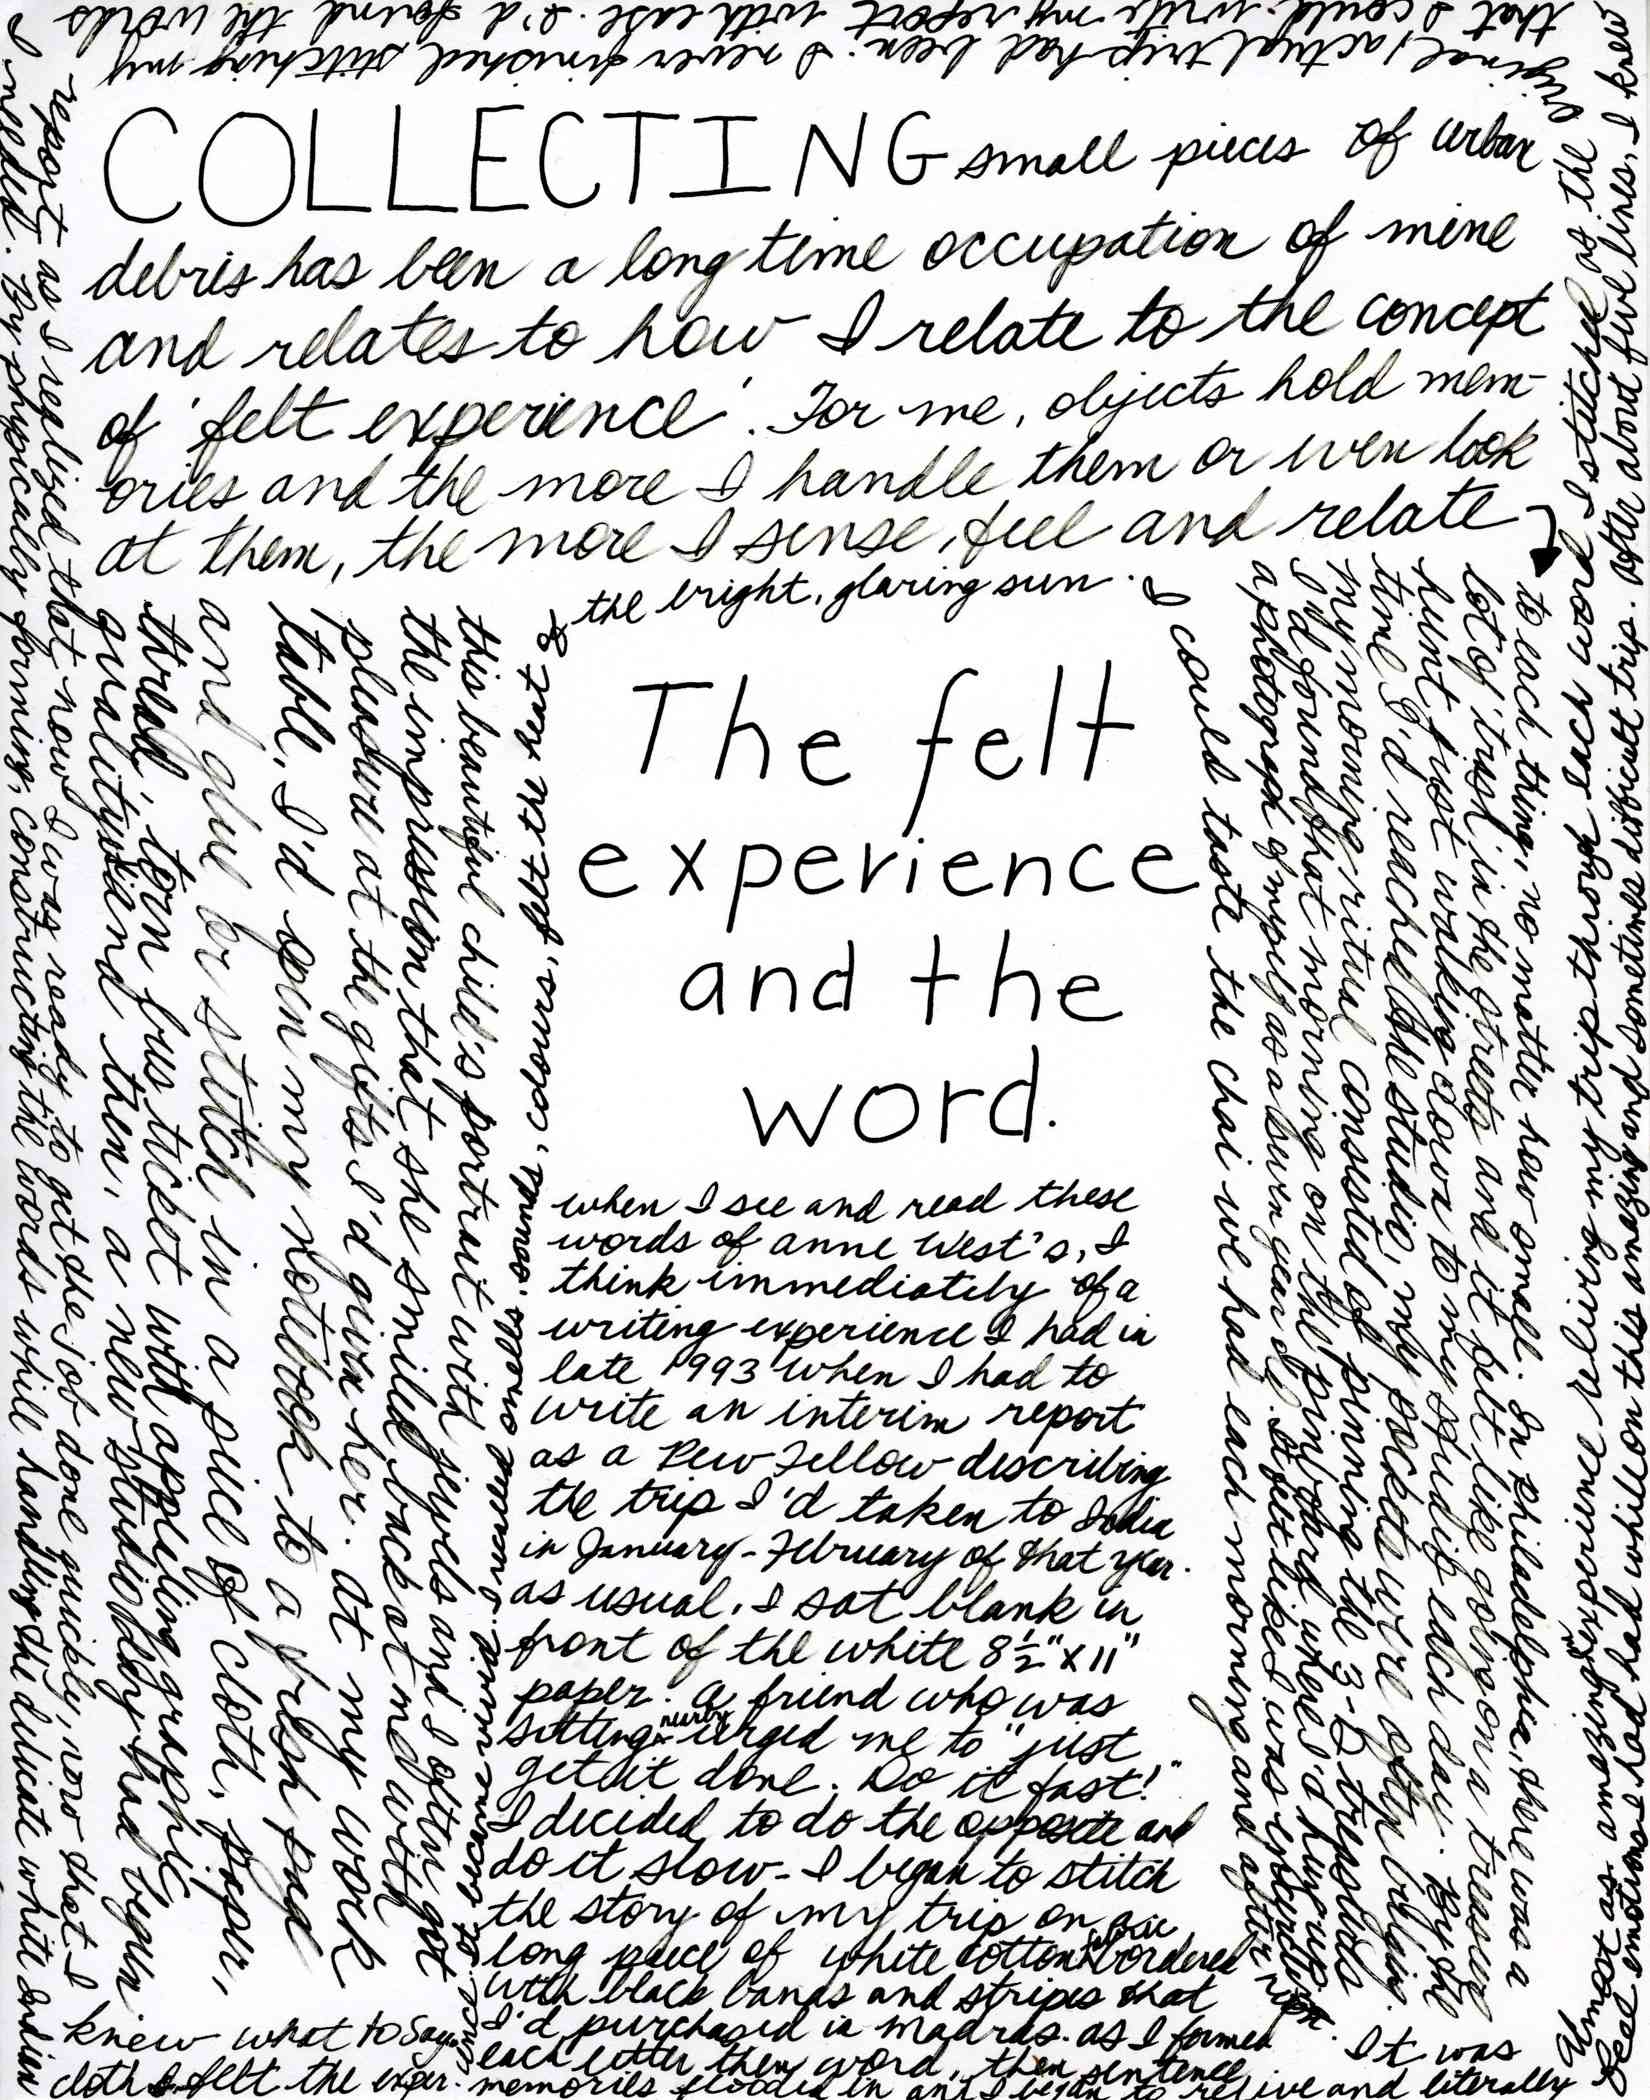 COLLECTING small pieces of urban
debris has been a long time occupation of mine
and relates to how I relate to the concept
of 'felt experience'. For me, objects hold mem-
ories and the more I handle them or even look
at them, the more I sense, feel and relate
to each thing, no matter how small. In Philadelphia, there was a
lot of 'trash' in the streets and it felt like going on a treasure
hunt just walking down to my studio each day. By the
time I'd reached the studio, my pockets were often bulging.
My morning ritual consisted of pinning the 3-D treasures
I'd found that morning on the pinboard where I'd hung up
a photograph of myself as a seven year old. It felt like I was
this beautiful child's portrait with jewels and I often got
the impression that she smiled back at me with
pleasure at the gifts I'd given her. At my work
table, I'd open my notebook to a fresh page
and glue or stitch in a piece of cloth, paper,
thread, torn bus ticket with appealing graphic
quality and then, a new studio day had begun
The felt
experience
and the
word.
when I see and read these
words of Anne West's, I
think immediately of a
writing experience I had in
late 1993 when I had to
write an interim report
as a Pew Fellow describing
the trip I'd taken to India
in January-February of that year.
As usual, I sat blank in
front of the white 8½" x 11"
paper. A friend who was
sitting nearby urged me to "just
get it done. Do it fast!"
I decided to do the opposite and
do it slow - I began to stitch
the story of my trip on a
long piece of white cotton bordered
with black bands and stripes that
I'd purchased in Madras. As I formed
each letter then word, then sentence
memories flooded in and I began to relive and literally
read emotions I had had while on this amazing and sometimes difficult trip. After about five lines, I knew
that I could write my report with ease. I'd found the words
I needed. By physically forming, constructing the words while handling the delicate white Indian
cloth I felt the exper-
sensed smells, sounds, colours, felt the heat &
the bright, glaring sun. I
could taste the chai we had each morning and after noon.
It was
almost as amazing an experience reliving my trip through each word I stitched as the
original/actual trip had been. I never finished stitching my
report as I realized that now I was ready to get the job done quickly, now that I
knew what to say.